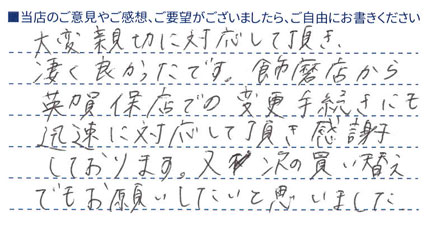 ■当店のご意見やご感想、ご要望がございましたら、ご自由にお書きください
大変親切に対応して頂き、
凄く良かったです。飾磨店から
英賀保店での変更手続きにも
迅速に対応して頂き感謝
しております。又次の買い替え
でもお願いしたいと思いました